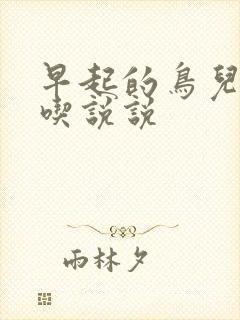 早起的鳥兒
喫説説
雨林夕